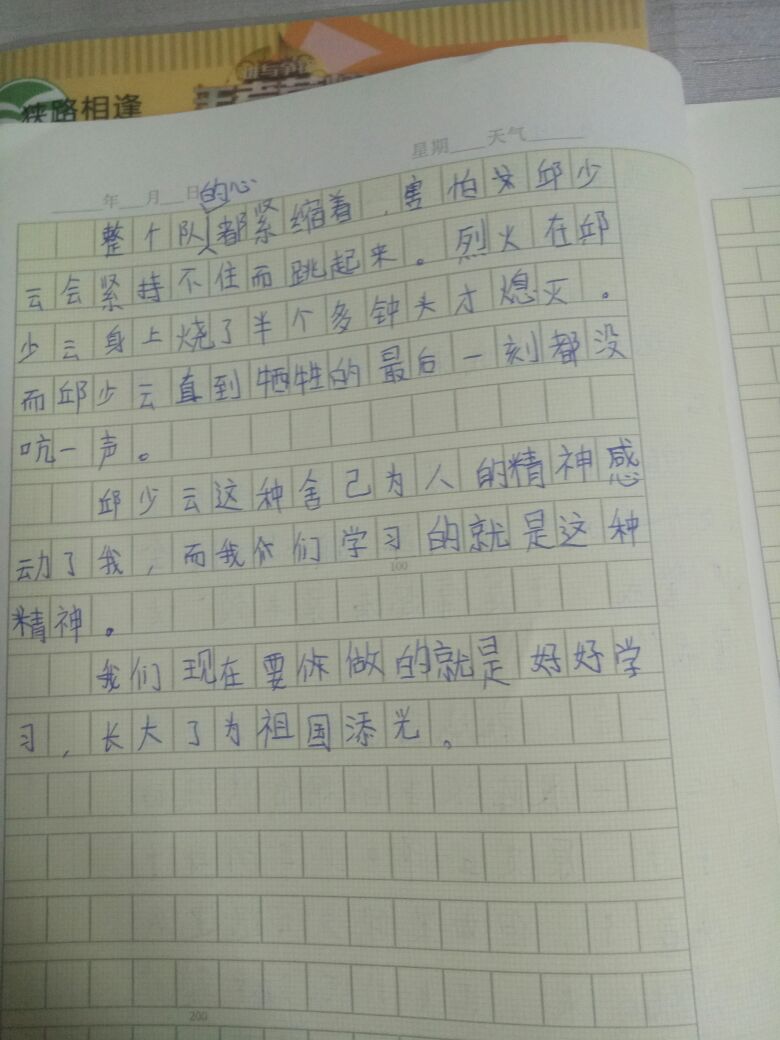 狭路相逢
星期 天气
年 月 日
的心
整个队都紧缩着，害怕邱少
云会紧持不住而跳起来。烈火在邱
少云身上烧了半个多钟头才熄灭。
而邱少云直到牺牲的最后一刻都没
吭一声。
邱少云这种舍己为人的精神感
动了我，而我你们学习的就是这种
100
精神。
我们现在要你做的就是好好学
习，长大了为祖国添光。
200